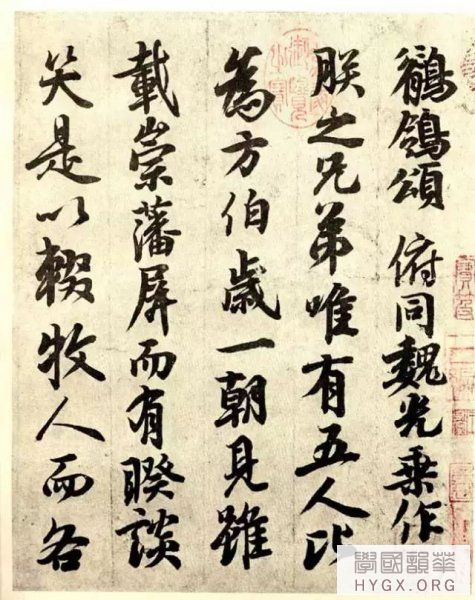 鶺鴒頌 俯同魏光乗作
朕之兄弟唯有五人比
為方伯歲一朝見雖
載崇藩屏而有睽談
笑是以輟牧人而各
學國韻華
HYGX.ORG